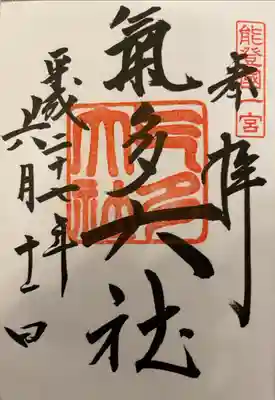 能登國一宮
奉拝
氣多大社
平成二十七年
六月十一日